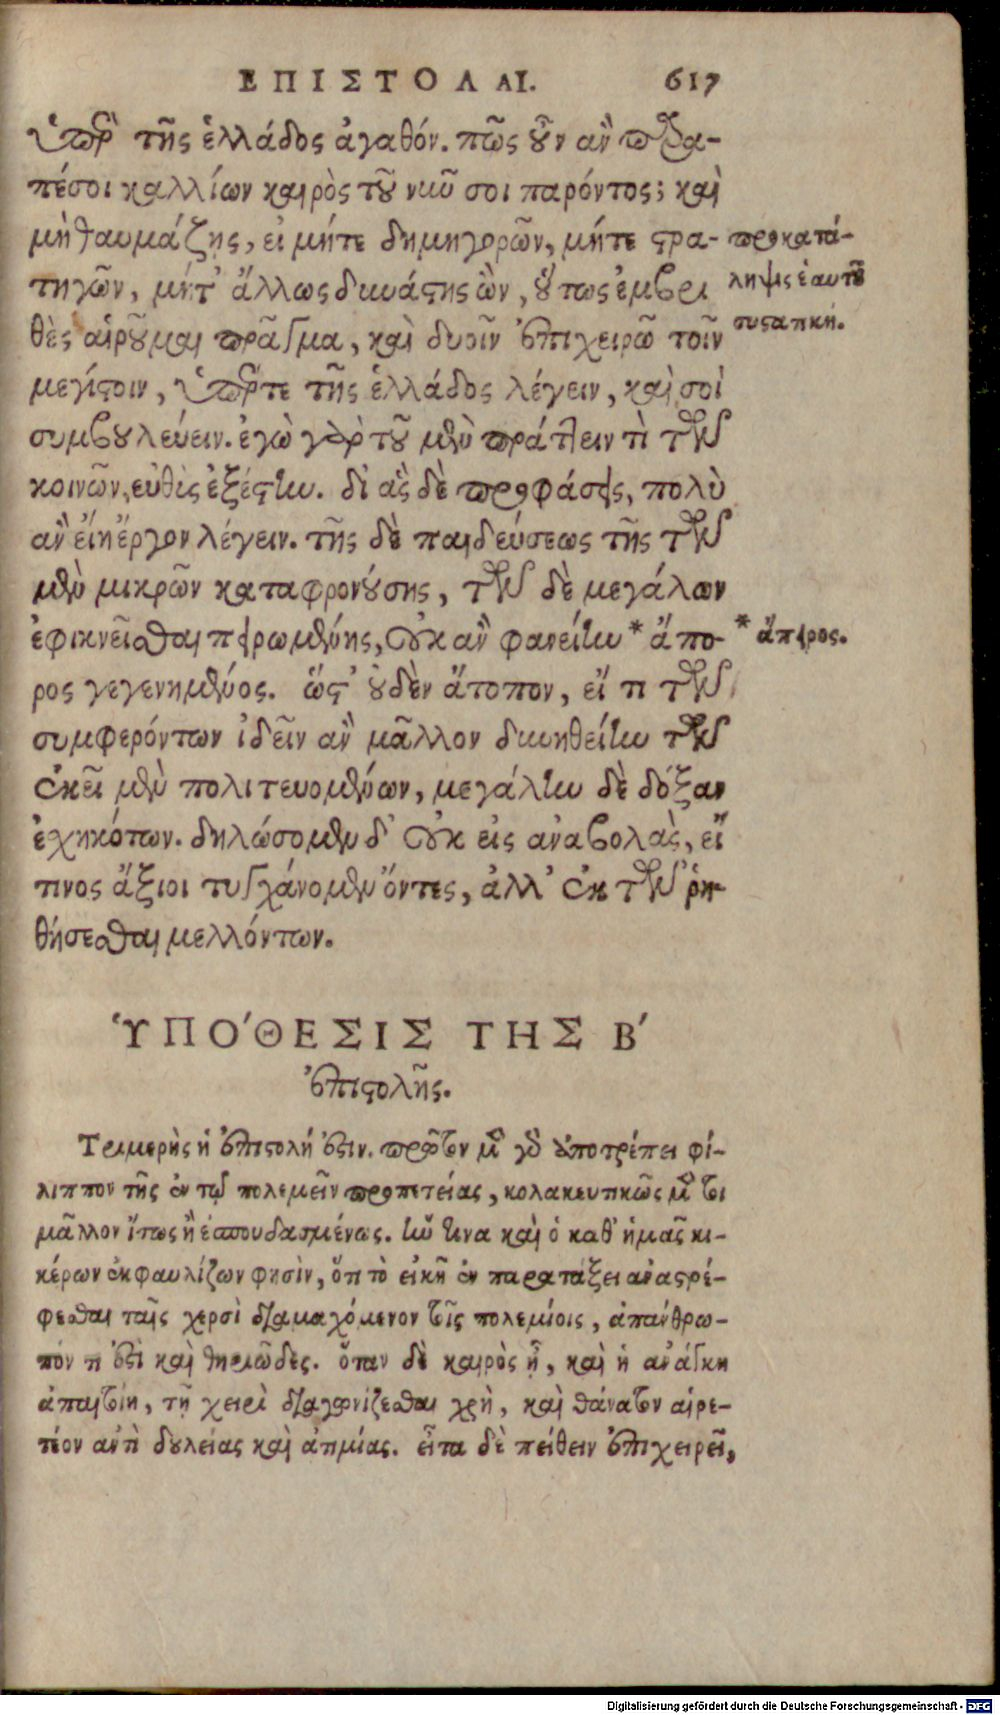 ΕΠΙΣΤΟΛΑΙ. 617
ὑπὲρ τῆς ἑλλάδος ἀγαθόν. πῶς οὖν ἂν παρα-
πέσοι καλλίων καιρὸς τοῦ νῦν σοι παρόντος; καὶ
μὴ θαυμάζῃς, εἰ μήτε δημηγορῶν, μήτε στρα-
τηγῶν, μήτ' ἄλλως δυνάστης ὢν, οὕτως ἐμβρι
θὲς αἱροῦμαι πρᾶγμα, καὶ δυοῖν ἐπιχειρῶ τοῖν
μεγίστοιν, ὑπέρ τε τῆς ἑλλάδος λέγειν, καὶ σοὶ
συμβουλεύειν. ἐγὼ γὰρ τοῦ μὲν πράττειν τὶ τῶν
κοινῶν, εὐθὺς ἐξέστην. δι ἃς δὲ προφάσεις, πολὺ
ἂν εἴη ἔργον λέγειν. τῆς δὲ παιδεύσεως τῆς τῶν
μὲν μικρῶν καταφρονούσης, τῶν δὲ μεγάλων
ἐφικνεῖσθαι πειρωμένης, οὐκ ἂν φανείην * ἄπο-
ρος γεγενημένος. ὥστ' οὐδὲν ἄτοπον, εἴ τι τῶν
συμφερόντων ἰδεῖν ἂν μᾶλλον δυνηθείην τῶν
ἐκεῖ μὲν πολιτευομένων, μεγάλην δὲ δόξαν
ἐχηκότων. δηλώσομεν δ' οὐκ εἰς ἀναβολὰς, εἴ
τινος ἄξιοι τυγχάνομεν ὄντες, ἀλλ' ἐκ τῶν ῥη-
θήσεσθαι μελλόντων.
προκατά-
ληψις ἑαυτοῦ
συστατική.
* ἄπειρος.
ὙΠΌΘΕΣΙΣ ΤΗΣ Β´
ἐπιστολῆς.
Τριμερὴς ἡ ἐπιστολή ἐστιν. πρῶτον μὲν γὰρ ἀποτρέπει φί-
λιππον τῆς ἐν τῷ πολεμεῖν προπετείας, κολακευτικῶς μέν τοι
μᾶλλον ἴσως ἢ ἐσπουδασμένως. ἣν τινα καὶ ὁ καθ' ἡμᾶς κι-
κέρων ἐκφαυλίζων φησὶν, ὅτι τὸ εἰκῆ ἐν παρατάξει ἀναστρέ-
φεσθαι ταῖς χερσὶ διαμαχόμενον τοῖς πολεμίοις, ἀπάνθρω-
πόν τι ἐστὶ καὶ θηριῶδες. ὅταν δὲ καιρὸς ᾖ, καὶ ἡ ἀνάγκη
ἀπαιτοίη, τῇ χειρὶ διαγωνίζεσθαι χρὴ, καὶ θάνατον αἱρε-
τέον ἀντὶ δουλείας καὶ ἀτιμίας. εἶτα δὲ πείθειν ἐπιχειρεῖ,
Digitalisierung gefördert durch die Deutsche Forschungsgemeinschaft - DFG